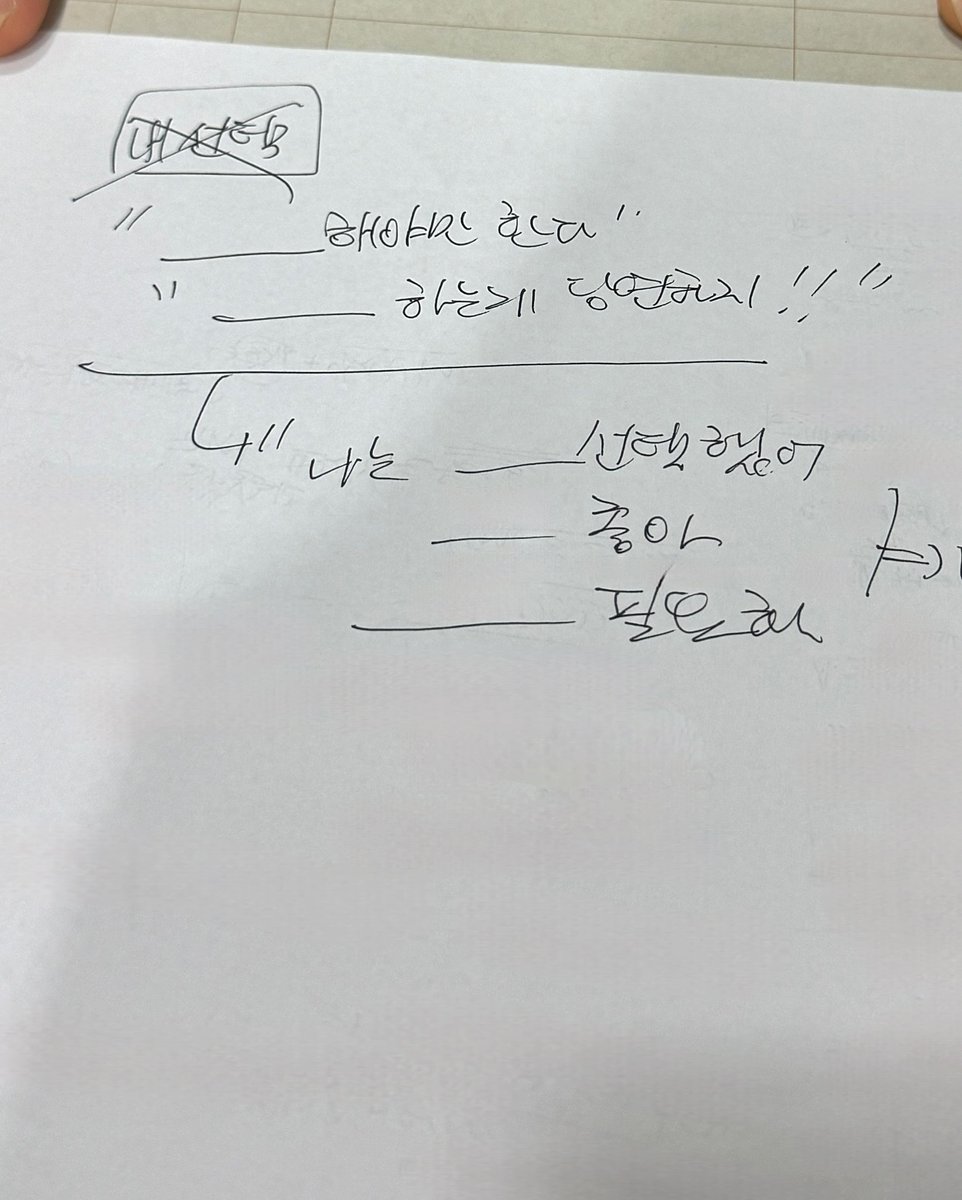 내 선택
" ____ 해야만 한다"
" ____ 하는게 당연하지!!"
" 나는 ____ 선택했어
____ 좋아
____ 필요해
=>